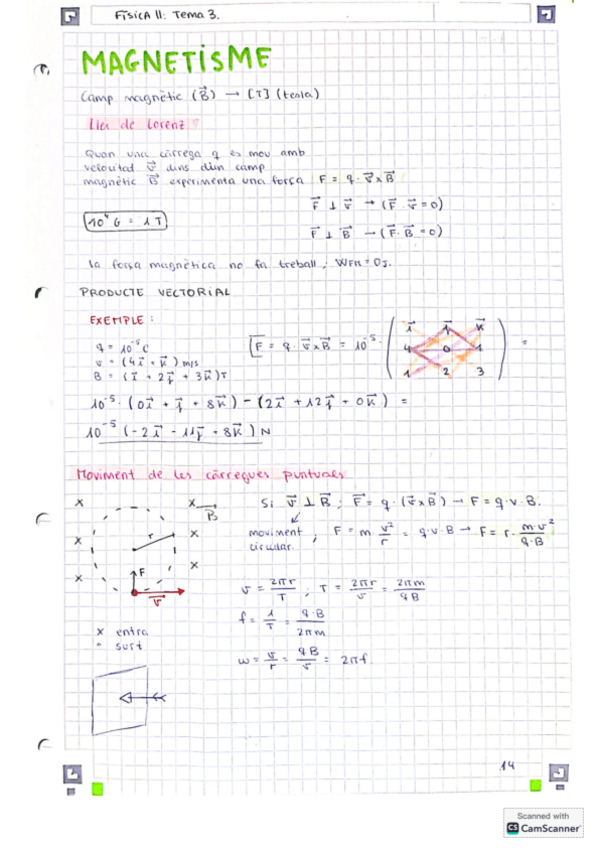 Física II: Tema 3.
MAGNETISME
Camp magnètic (B⃗) → [T] (tesla)
Llei de Lorenz
Quan una càrrega q es mou amb
velocitat v⃗ dins d'un camp
magnètic B⃗ experimenta una força F = q · v⃗ x B⃗
F⃗ ⊥ v⃗ → (F⃗ · v⃗ = 0)
10⁴ G = 1 T
F⃗ ⊥ B⃗ → (F⃗ · B⃗ = 0)
La força magnètica no fa treball; WFM = 0J.
PRODUCTE VECTORIAL
EXEMPLE:
q = 10⁻⁵ C
v = (4i⃗ + k⃗) m/s
B = (i⃗ + 2j⃗ + 3k⃗) T
F = q · v⃗ x B⃗ = 10⁻⁵ · ( i⃗ j⃗ k⃗
4 0 1
1 2 3 ) =
10⁻⁵ · (0i⃗ + j⃗ + 8k⃗) - (2i⃗ + 12j⃗ + 0k⃗) =
10⁻⁵ (-2i⃗ - 11j⃗ + 8k⃗) N
Moviment de les càrregues puntuals
Si v⃗ ⊥ B⃗ ; F⃗ = q · (v⃗ x B⃗) → F = q · v · B.
moviment circular ; F = m v²/r = q · v · B → F = r · m·v²/q·B
x x B⃗
x r x
x F x
v⃗
v = 2πr/T ; T = 2πr/v = 2πm/qB
f = 1/T = q·B/2πm
x entra
• surt
w = v/r = qB/v = 2πf.
14
Scanned with
CS CamScanner